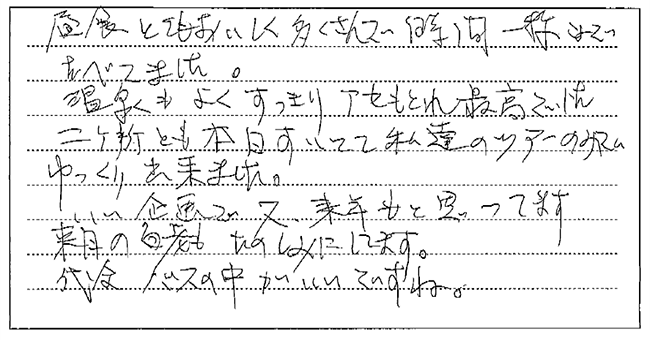 昼食とてもおいしく多くさんで時間一杯迄
たべてました。
温泉もよくすっきりアセもとれ最高でした
二ヶ所とも本日すいてて私達のツアーのみで
ゆっくり出来ました。
いい企画で又、来年もと思ってます
来月の もたのしみにしてます。
代金バスの中がいいですね。